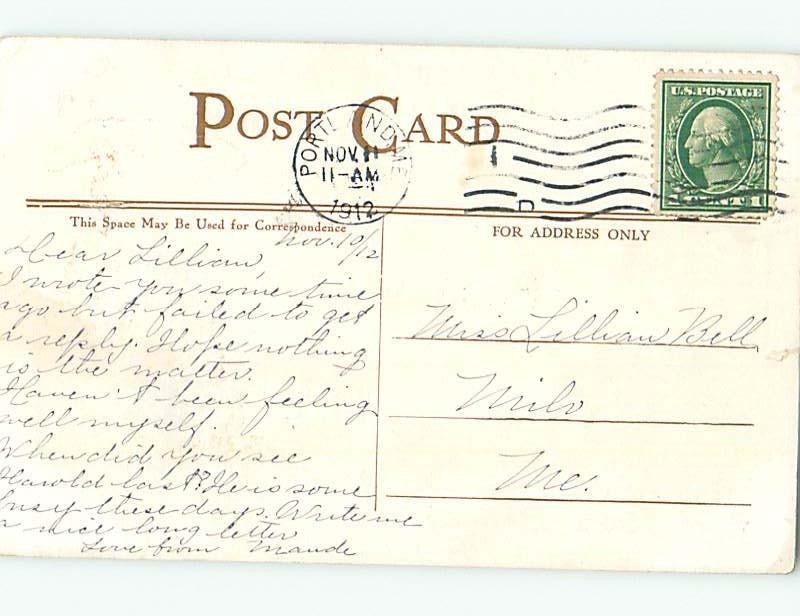 POST CARD
PORTLAND, ME
NOV 11
11-AM
1912
U.S. POSTAGE
This Space May Be Used for Correspondence
FOR ADDRESS ONLY
Nov. 10/12
Dear Lillian,
I wrote you some time
ago but failed to get
a reply. Hope nothing
is the matter.
Haven't been feeling
well myself.
When did you see
Harold last? He is some
busy these days. Write me
a nice long letter
Love from Maude
Miss Lillian Bell
Milo
Me.